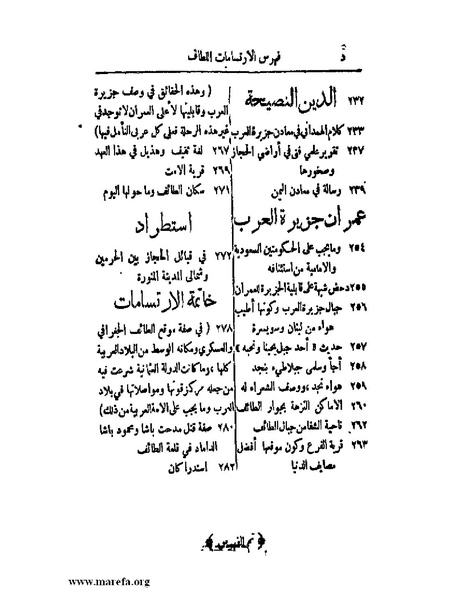 فهرس الارتسامات اللطاف
ذ
الدين النصيحة
٢٣٢
٢٣٣ كلام الهمداني في معادن جزيرة العرب
٢٣٧ تقرير علمي فني في أراضي الحجاز
وصخورها
٢٣٩ رسالة في معادن اليمن
عمران جزيرة العرب
٢٥٤ وما يجب على الحكومتين السعودية
والامامية من استئنافه
٢٥٥ دحض شبهة على قابلية الجزيرة للعمران
٢٥٦ جبال جزيرة العرب وكونها أطيب
هواء من لبنان وسويسرة
٢٥٧ حديث « أحد جبل يحبنا ونحبه »
٢٥٨ أجأ وسلمى جبلا طيء بنجد
٢٥٩ هواء نجد ووصف الشعراء له
٢٦٠ الاماكن النزهة بجوار الطائف
٢٦٢ ناحية الشفا من جبال الطائف
٢٦٣ قرية الفرع وكون موقعها أفضل
مصايف الدنيا
( وهذه الحقائق في وصف جزيرة
العرب وقابليتها لأعلى العمران لا توجد في
غير هذه الرحلة فعلى كل عربي التأمل فيها )
٢٦٧ لغة ثقيف وهذيل في هذا العهد
٢٦٩ قرية
٢٧١ سكان الطائف وما حولها اليوم
استطراد
٢٧٢ في قبائل الحجاز بين الحرمين
وشمالي المدينة المنورة
خاتمة الارتسامات
٢٧٨ ( في صفة موقع الطائف الجغرافي
والعسكري ومكانه الوسط من البلاد العربية
كلها ، وما كانت الدولة العثمانية شرعت فيه
من جعله مركز قوتها ومواصلاتها في بلاد
العرب وما يجب على الامة العربية من ذلك )
٢٨٠ صفة قتل مدحت باشا ومحمود باشا
الداماد في قلعة الطائف
٢٨٢ استدراكان
﴿ تم الفهرس ﴾
www.marefa.org